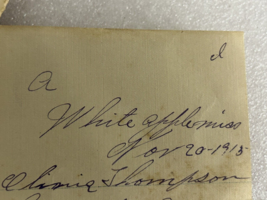 A
White apple miss
Nov 20-1915
Olivia Thompson